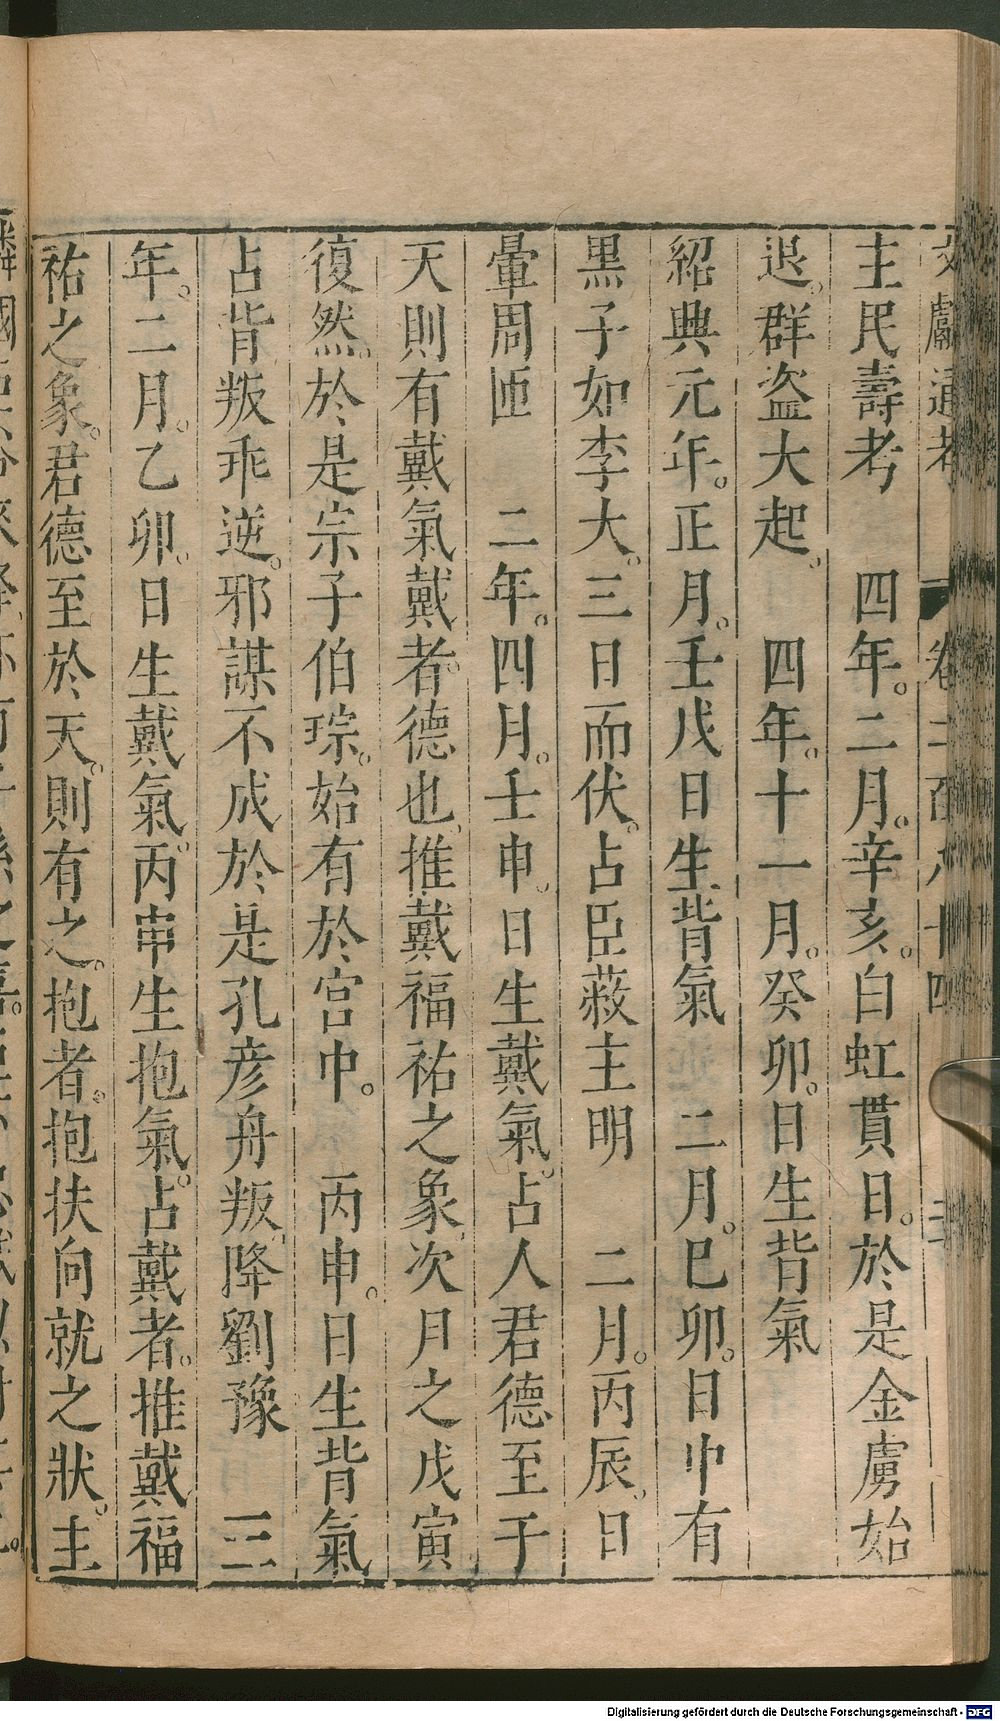 文獻通考 卷二百八十四 三
主民壽考 四年。二月。辛亥。白虹貫日。於是金虜始
退。群盗大起。 四年。十一月。癸卯。日生背氣
紹興元年。正月。壬戌日生背氣 二月。巳卯。日中有
黑子如李大。三日而伏。占臣蔽主明 二月。丙辰。日
暈周匝 二年。四月。壬申。日生戴氣。占人君德至于
天則有戴氣戴者。德也。推戴福祐之象。次月之戊寅
復然。於是宗子伯琮。始有於宮中。 丙申。日生背氣
占背叛乖逆。邪謀不成於是孔彦舟叛。降劉豫 三
年。二月。乙卯。日生戴氣。丙申生抱氣。占戴者。推戴福
祐之象。君德至於天。則有之。抱者。抱扶向就之狀。主
Digitalisierung gefördert durch die Deutsche Forschungsgemeinschaft - DFG